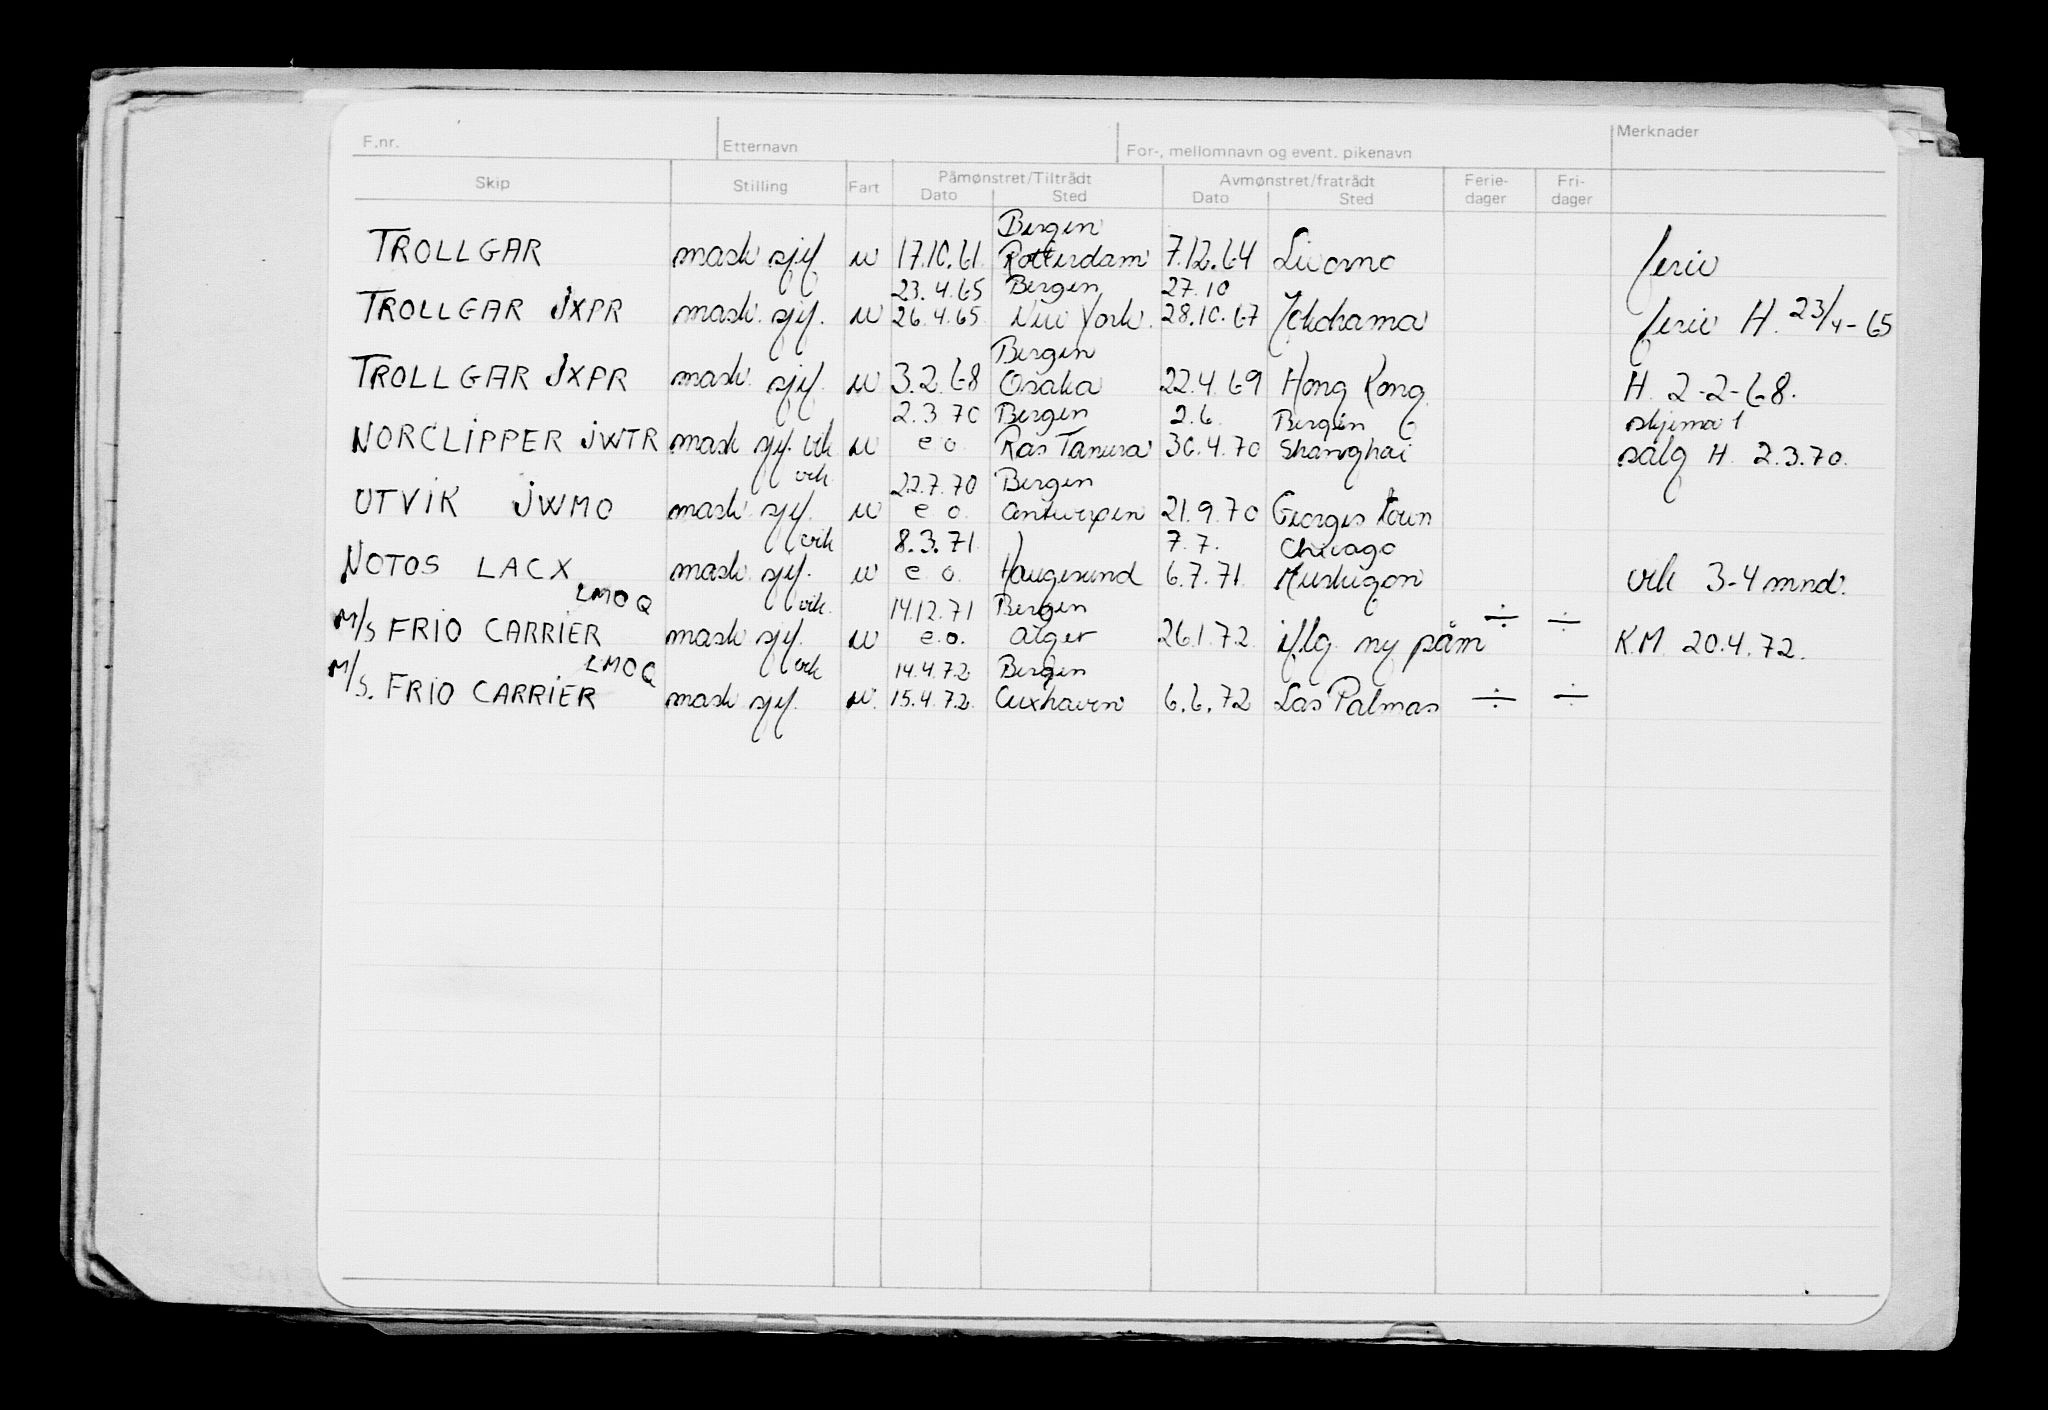 F.nr. Etternavn For-, mellomnavn og event. pikenavn Merknader
Skip Stilling Fart Påmønstret/Tiltrådt Avmønstret/fratrådt Ferie- Fri-
Dato Sted Dato Sted dager dager
Bergen
TROLLGAR mask sjef u 17.10.61. Rotterdam 7.12.64 Livorno ferie
23.4.65 Bergen 27.10
TROLLGAR JXPR mask. sjef. u 26.4.65. New York. 28.10.67 Yokohama ferie H. 23/4-65
Bergen
TROLLGAR JXPR mask. sjef. u 3.2.68 Osaka 22.4.69 Hong Kong H. 2-2-68.
2.3 70 Bergen 2.6. Bergen skjema 1
NORCLIPPER JWTR mask sjef. vik u e o. Ras Tanura 30.4.70 Shanghai salg H. 2.3.70.
vik. 22.7.70 Bergen
UTVIK JWMO mask. sjef. u e o. Antwerpen 21.9.70 Georges Town
vik 8.3.71. 7.7. Chicago
NOTOS LACX mask. sjef. u e o. Haugesund 6.7.71. Muskegon vik 3-4 mnd.
LMOQ vik. 14.12.71 Bergen
M/S FRIO CARRIER mask sjef. u e.o. Alger 26.1.72. iflg. ny påm ÷ ÷ KM 20.4.72.
LMOQ vik 14.4.72 Bergen
M/S. FRIO CARRIER mask sjef. u. 15.4.72. Cuxhaven 6.6.72 Las Palmas ÷ ÷